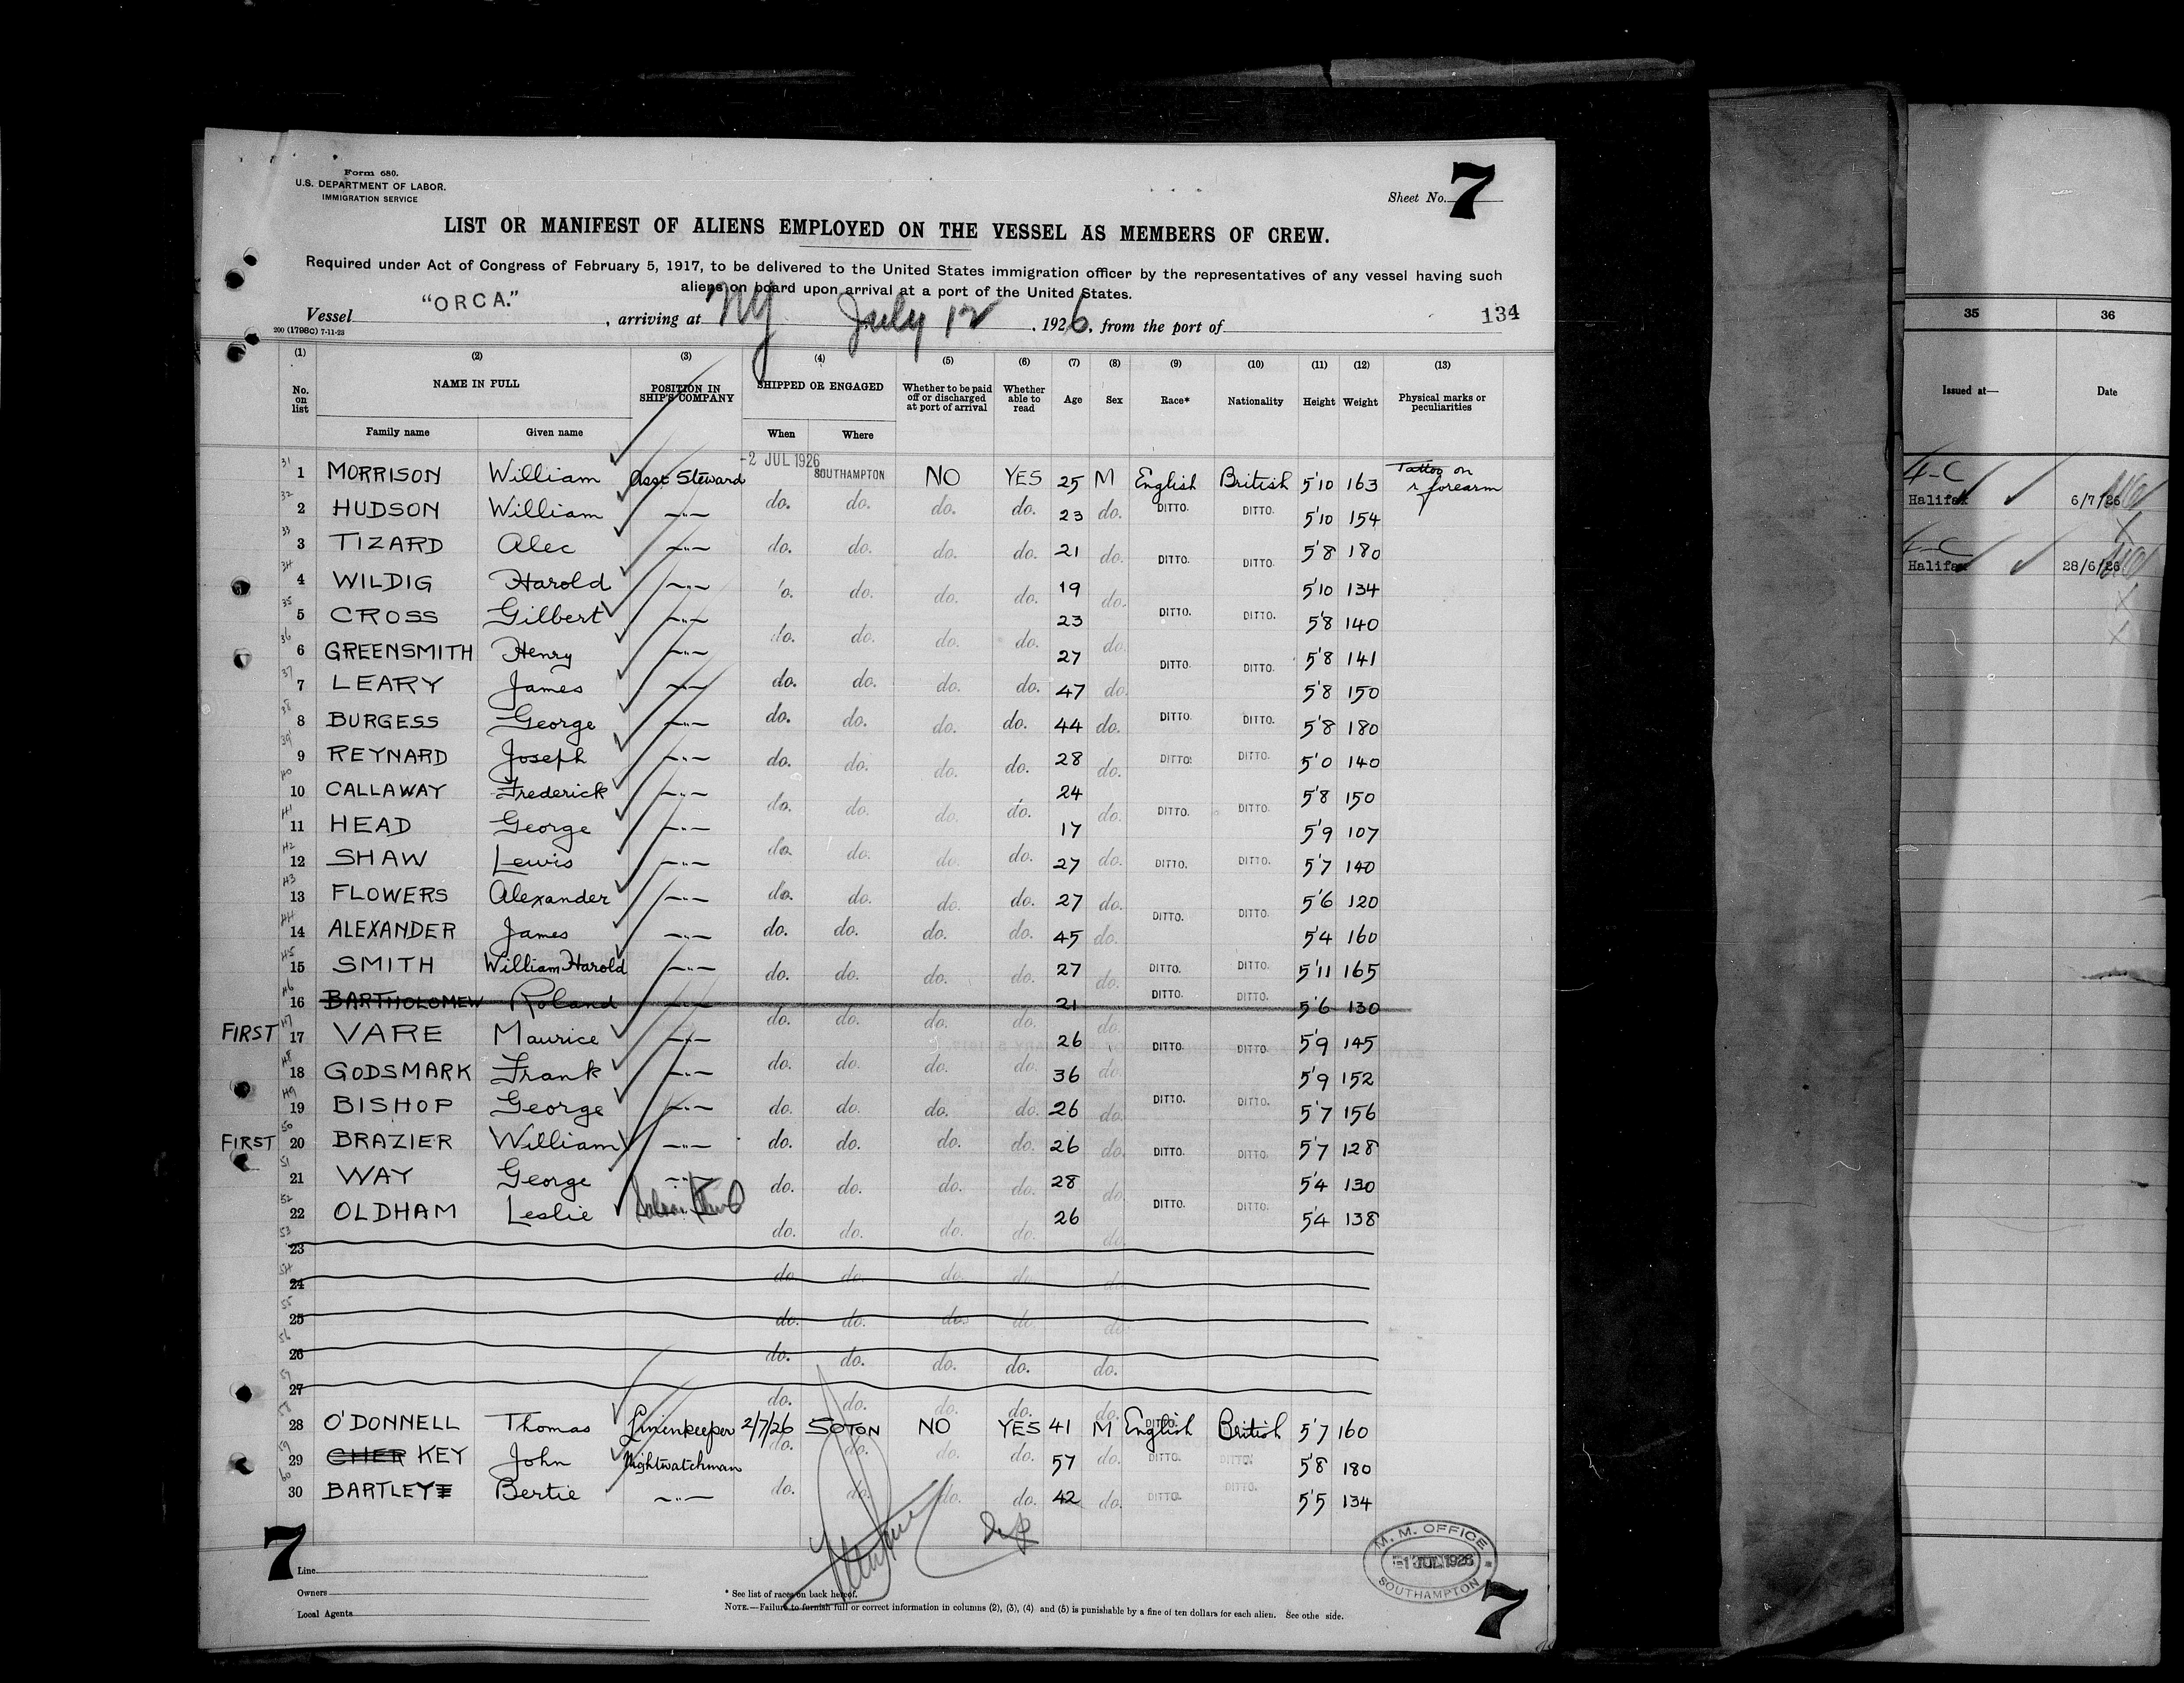 Form 680.
U.S. DEPARTMENT OF LABOR.
IMMIGRATION SERVICE
Sheet No. 7
LIST OR MANIFEST OF ALIENS EMPLOYED ON THE VESSEL AS MEMBERS OF CREW.
Required under Act of Congress of February 5, 1917, to be delivered to the United States immigration officer by the representatives of any vessel having such
aliens on board upon arrival at a port of the United States.
Vessel "ORCA." , arriving at NY July 12 , 1926, from the port of 134
200 (1798C) 7-11-25
(1) (2) (3) (4) (5) (6) (7) (8) (9) (10) (11) (12) (13) 35 36
No. on list NAME IN FULL POSITION IN SHIP'S COMPANY SHIPPED OR ENGAGED Whether to be paid off or discharged at port of arrival Whether able to read Age Sex Race* Nationality Height Weight Physical marks or peculiarities Issued at— Date
Family name Given name When Where
31 1 MORRISON William Asst Steward -2 JUL 1926 SOUTHAMPTON NO YES 25 M English British 5'10 163 Tattoo on r forearm 4-C Halifax 6/7/26
32 2 HUDSON William —"— do. do. do. do. 23 do. DITTO. DITTO. 5'10 154
33 3 TIZARD Alec —"— do. do. do. do. 21 do. DITTO. DITTO. 5'8 180 4-C Halifax 28/6/26
34 4 WILDIG Harold —"— 'o. do. do. do. 19 do. 5'10 134
35 5 CROSS Gilbert —"— 23 DITTO. DITTO. 5'8 140
36 6 GREENSMITH Henry —"— do. do. do. do. 27 do. DITTO. DITTO. 5'8 141
37 7 LEARY James —"— do. do. do. do. 47 do. 5'8 150
38 8 BURGESS George —"— do. do. do. do. 44 do. DITTO. DITTO. 5'8 180
39 9 REYNARD Joseph —"— do. do. do. do. 28 do. DITTO. DITTO. 5'0 140
40 10 CALLAWAY Frederick —"— do. do. do. do. 24 do. DITTO. DITTO. 5'8 150
41 11 HEAD George —"— 17 5'9 107
42 12 SHAW Lewis —"— do. do. do. do. 27 do. DITTO. DITTO. 5'7 140
43 13 FLOWERS Alexander —"— do. do. do. do. 27 do. DITTO. DITTO. 5'6 120
44 14 ALEXANDER James —"— do. do. do. do. 45 do. 5'4 160
45 15 SMITH William Harold —"— do. do. do. do. 27 do. DITTO. DITTO. 5'11 165
46 16 BARTHOLOMEW Roland —"— 21 DITTO. DITTO. 5'6 130
FIRST 47 17 VARE Maurice —"— do. do. do. do. 26 do. DITTO. DITTO. 5'9 145
48 18 GODSMARK Frank —"— do. do. do. do. 36 do. 5'9 152
49 19 BISHOP George —"— do. do. do. do. 26 do. DITTO. DITTO. 5'7 156
FIRST 50 20 BRAZIER William —"— do. do. do. do. 26 do. DITTO. DITTO. 5'7 128
51 21 WAY George —"— do. do. do. do. 28 do. 5'4 130
52 22 OLDHAM Leslie 26 DITTO. DITTO. 5'4 138
53 23 do. do. do. do. do.
54 24 do. do. do. do. do.
55 25 do. do. do. do. do.
56 26 do. do. do. do. do.
57 27 do. do. do. do. do.
58 28 O'DONNELL Thomas Linenkeeper 2/7/26 SOTON NO YES 41 M English DITTO. British 5'7 160
59 29 CHER KEY John Nightwatchman do. do. do. do. 57 do. DITTO. DITTO. 5'8 180
60 30 BARTLEY Bertie —"— do. do. do. do. 42 do. DITTO. DITTO. 5'5 134
7
Line
Owners
Local Agents
* See list of races on back hereof.
NOTE.—Failure to furnish full or correct information in columns (2), (3), (4) and (5) is punishable by a fine of ten dollars for each alien. See othe side.
M. M. OFFICE
-1 JUL 1926
SOUTHAMPTON
7